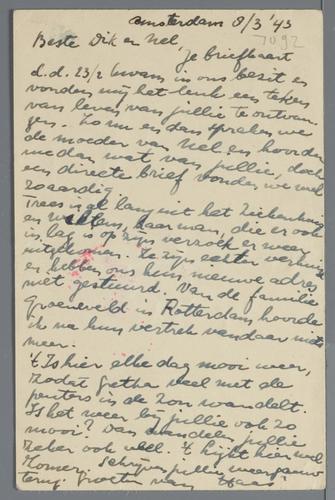 Amsterdam 8/3 '43
7092
Beste Dik en Nel,
Je briefkaart
d.d. 23/2 kwam in ons bezit en
vonden wij het leuk een teken
van leven van jullie te ontvan-
gen. Zo nu en dan spraken we
de moeder van Nel en hoorden
we dan wat van jullie, doch
een directe brief vonden we wel
zo aardig.
Trees is al lang uit het Ziekenhuis
en Willem, haar man, die er ook
in lag is op zijn verzoek er weer
uitgekomen. Ze zijn echter verhuisd
en hebben ons hun nieuwe adres
niet gestuurd. Van de familie
Groeneveld in Rotterdam hoorde
ik na hun vertrek vandaar niets
meer.
't Is hier elke dag mooi weer,
zodat Gretha veel met de
peuters in de zon wandelt.
Is het weer bij jullie ook zo
mooi? Dan wandelen jullie
zeker ook veel. 't Lijkt hier wel
Zomer. Schrijven jullie weer gauw
terug. Groeten van